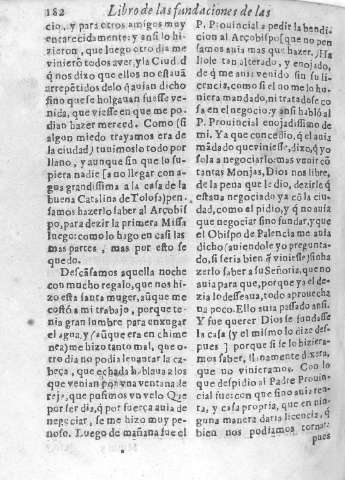 182 Libro de las fundaciones de las
cio, y para otros amigos muy
encarecidamente: y ansi lo hi-
zieron, que luego otro dia me
vinierõ todos aver, y la Ciud. d
q̃ nos dixo que ellos no estauã
arrepẽtidos delo q̃ auian dicho
sino que se holgauan fuesse ve-
nida, que viesse en que me po-
dian hazer merced. Como (si
algun miedo trayamos era de
la ciudad) tunimoslo todo por
llano, y aunque sin que lo su-
piera nadie [a no llegar con a-
gua grandissima a la casa de la
buena Catalina de Tolosa) pen.
samos hazerlo saber al Arçobis
po, para dezir la primera Missa
luego: como lo hago en casi las
mas partes, mas por esto se
quedo.
Descãsamos aquella noche
con mucho regalo, que nos hi-
zo esta santa muger, aũque me
costò a mi trabajo, porque te-
nia gran lumbre para enxugar
el agua, y (aũque era en chime
nea) me hizo tanto mal, que o-
tro dia no podia leuantar la ca-
beça, que echada hablaua a los
que venian por vna ventana de
reja, que pusimos vn velo Que
por ser dia, q̃ por fuerça auia de
negociar, se me hizo muy pe-
noso. Luego de mañana fue el
P. Prouincial a pedir la bendi-
cion al Arçobispo [que no pen
samos auia mas que hazer. Ha
llole tan alterado, y enojado,
de q̃ me auia venido sin su li-
cencia, como si el no me lo hu-
niera mandado, ni tratadose co
sa en el negocio, y ansi hablò al
P. Prouincial enojadissimo de
mi. Ya que concessio, q̃ el auia
mãdado que viniesse, dixo, q̃ yo
sola a negociarlo: mas venir cõ
tantas Monjas, Dios nos libre,
de la pena que le dio, dezirle q̃
estana negociado ya cõ la ciu-
dad, como el pidio, y q̃ no auia
que negociar sino fundar, y que
el Obispo de Palencia me auia
dicho (auiendole yo pregunta-
do, si seria bien q̃ viniesse) sin ha
zerlo saber a su Señoria, que no
auia para que, porque ya el de-
zia lo desseaua, todo aprouecha
na poco. Ello auia passado ansi.
Y fue querer Dios se fundasse
la casa (y el mismo lo dize des-
pues] porque si se lo hiziera-
mos saber, llanamente dixera,
que no vinieramos. Con lo
que despidio al Padre Prouin-
cial fue: con que sino auia ren-
ta, y casa propria, que en nin-
guna manera daria licencia, q̃
bien nos podiamos tornar.
pues